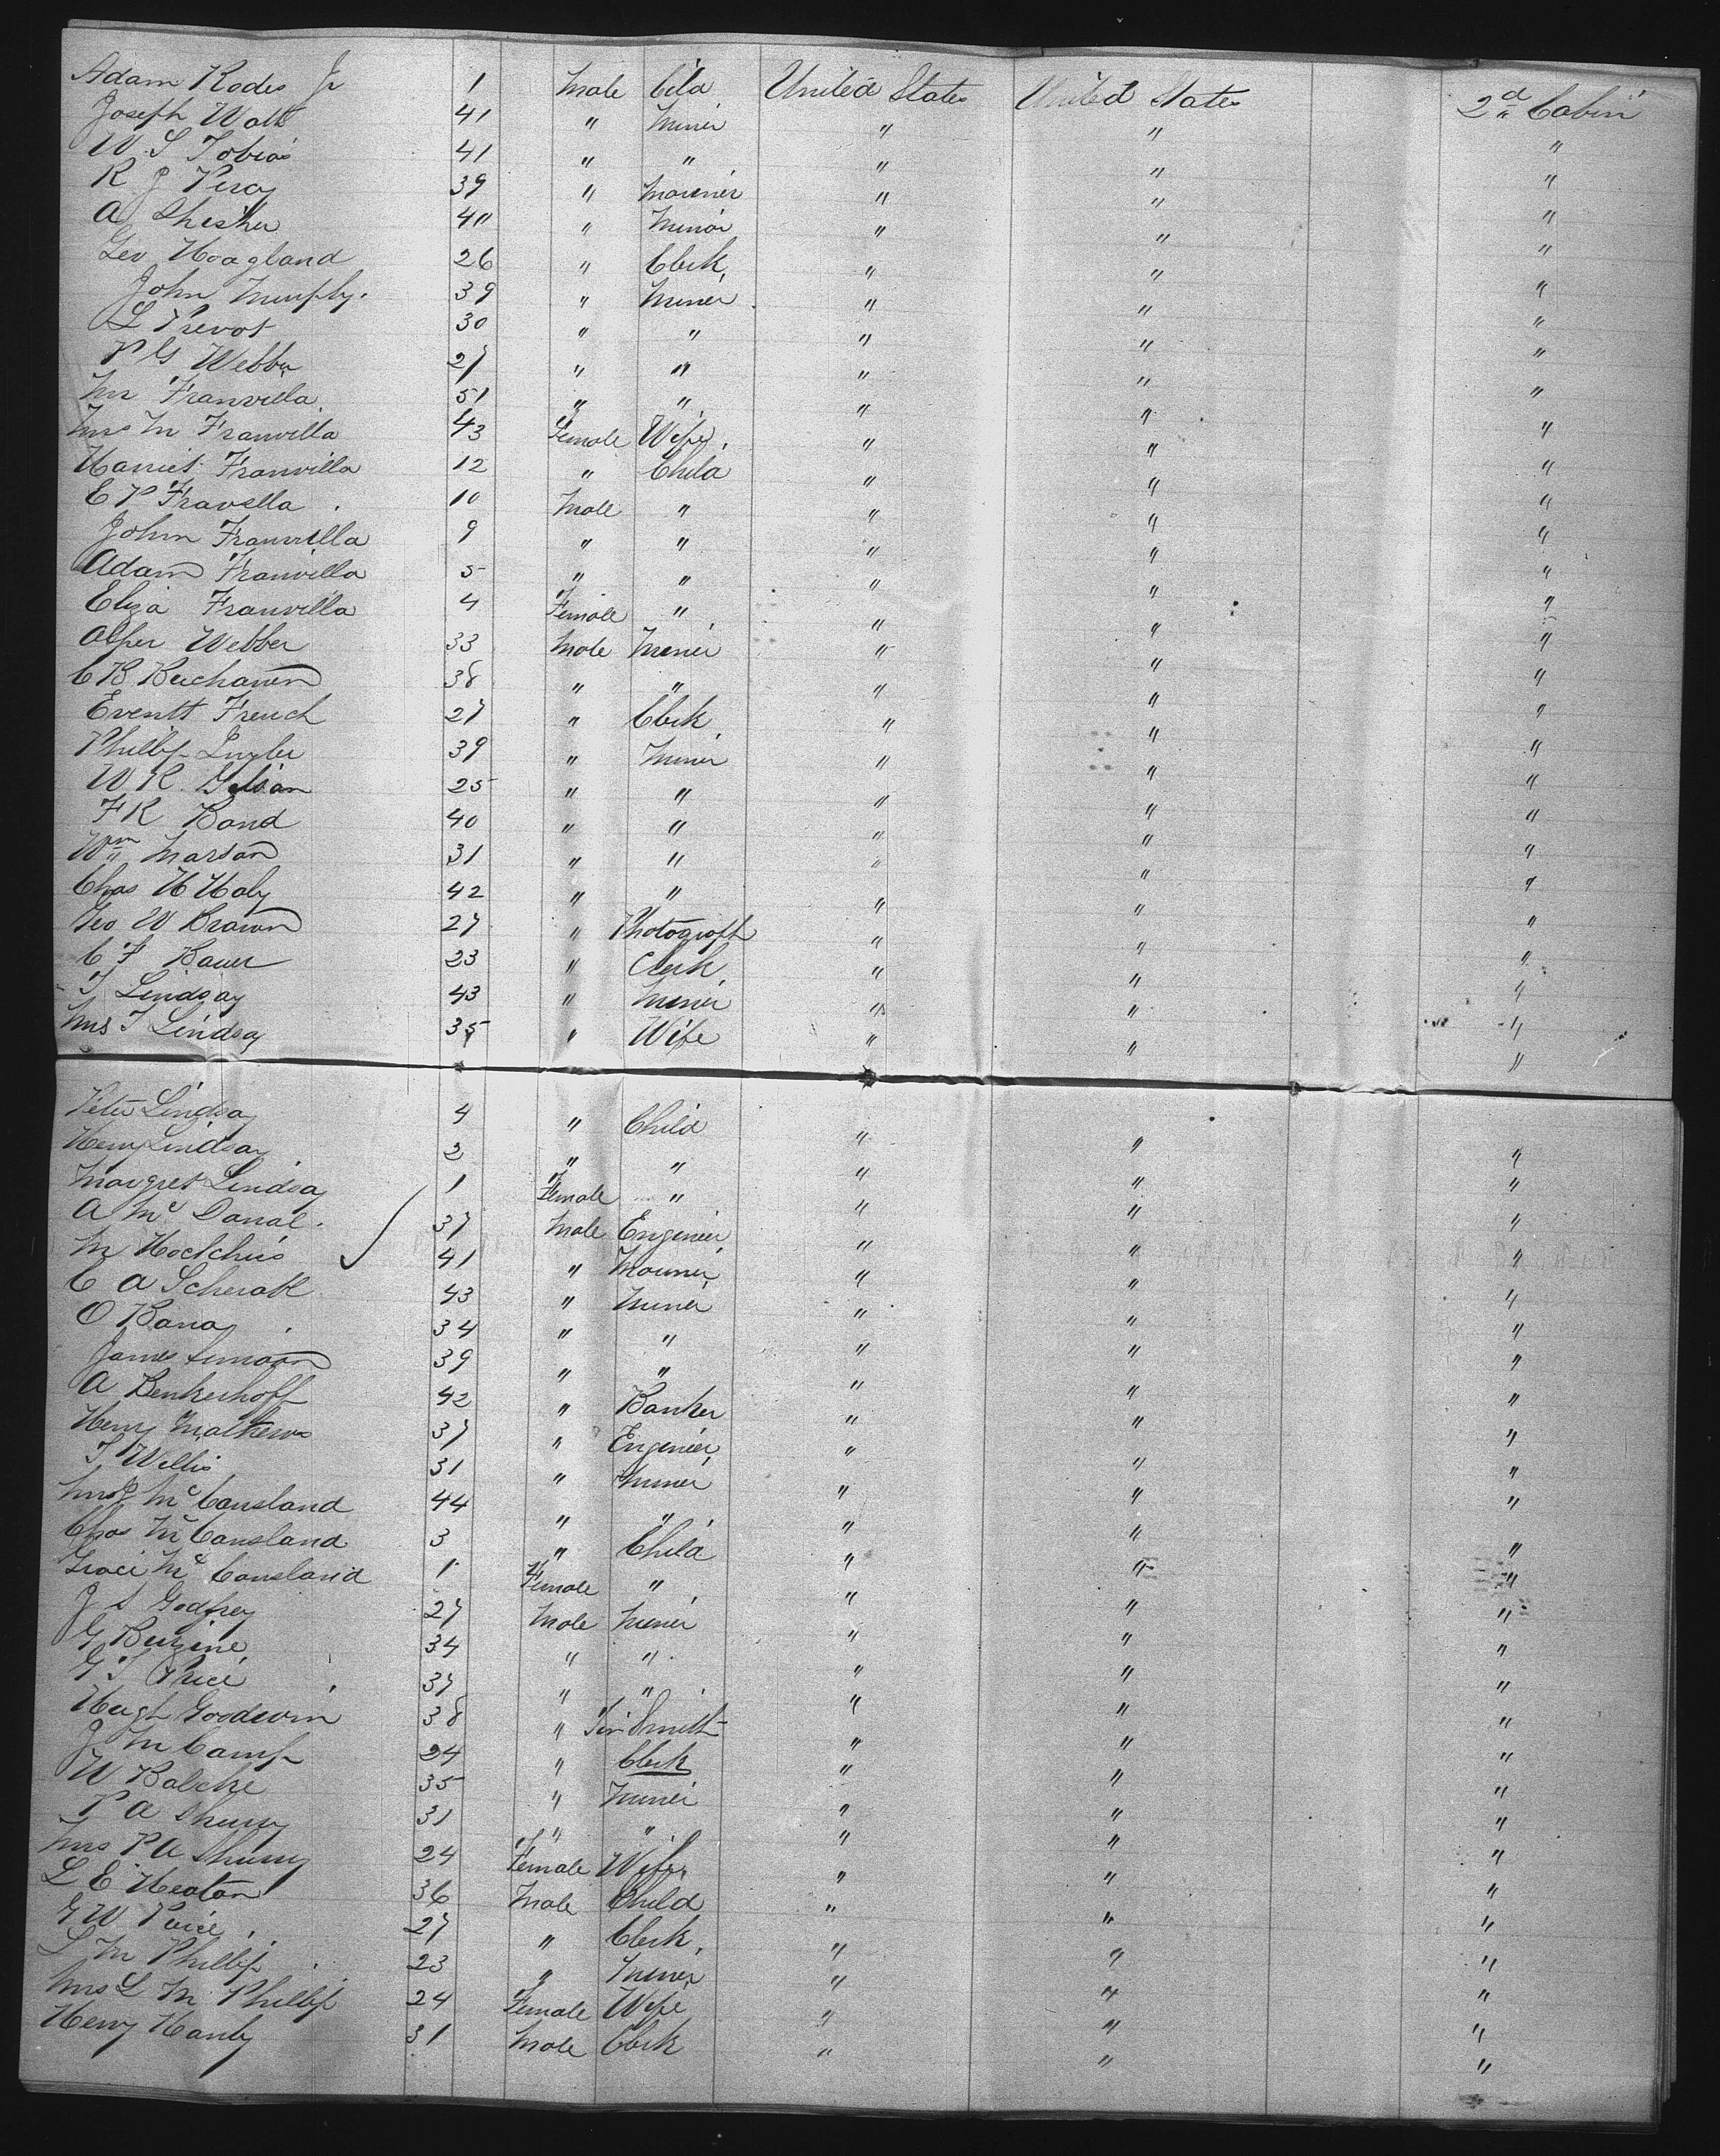 Adam Rodes Jr 1 Male Cild United States United States 2d Cabin
Joseph Walt 41 " Miner " " "
W. S Tobias 41 " " " " "
R J Percy 39 " Marinér " " "
A Shisher 40 " Minor " " "
Geo Hoagland 26 " Clerk " " "
John Murphy. 39 " Miner " " "
L Prevot 30 " " " " "
P G Webber 27 " " " " "
M Franvilla 51 " " " " "
Mrs M Franvilla 43 Female Wife. " " "
Harriet Franvilla 12 " Child " " "
E P Fravella 10 Male " " " "
John Franvilla 9 " " " " "
Adam Franvilla 5 " " " " "
Eliza Franvilla 4 Female " " " "
Webber 33 Male Miner " " "
C B Buchanen 38 " " " " "
Everett French 27 " Clerk " " "
Phillip 39 " Miner " " "
W. R. 25 " " " " "
F R Band 40 " " " " "
Wm Marson 31 " " " " "
Chas H Haly 42 " " " " "
Geo W Brown 27 " Photogroph " " "
C F Bauer 23 " Clerk " " "
T Lindsay 43 " Miner " " "
Mrs T Lindsay 35 " Wife " " "
Peter Lindsay 4 " Child " " "
Henry Lindsay 2 " " " " "
Margret Lindsay 1 Female " " " "
A Mc Donal. 37 Male Enginier " " "
M Hoctchies 41 " Marinér " " "
C A 43 " Miner " " "
O 34 " " " " "
James 39 " " " " "
A Benkerhoff 42 " Banker " " "
Henry Mathews 37 " Enginier " " "
T Willis 31 " Miner " " "
Mrs J Mc Causland 44 " " " " "
Chas Mc Causland 3 " Child " " "
Graci Mc Causland 1 Female " " " "
J S Godfrey 27 Male Miner " " "
G 34 " " " " "
G T Price 37 " " " " "
Hugh Goodwin 38 " Tin Smith " " "
J M Camp 24 " Clerk " " "
W Balcke 35 " Miner " " "
P A Shury 31 " " " " "
Mrs P A Shury 24 Female Wife " " "
L E Heaton 36 Male Child " " "
G W Price 27 " Clerk " " "
L M Phillip 23 " Miner " " "
Mrs L M Phillip 24 Female Wife " " "
Henry Hanly 31 Male Clerk " " "